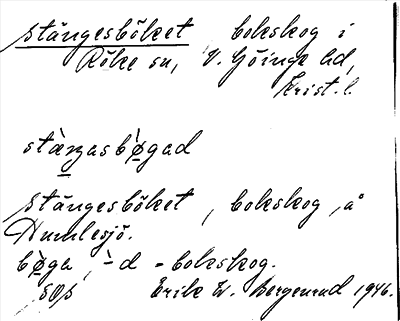 stängesböket bokskog i
Röke sn, V. Göinge hd,
Krist. l.
stæ̀ŋasbø̀gad
stängesböket, bokskog, å
Humlesjö.
bø̀ga, -d = bokskog.
Erik W. Bergenrud 1946.